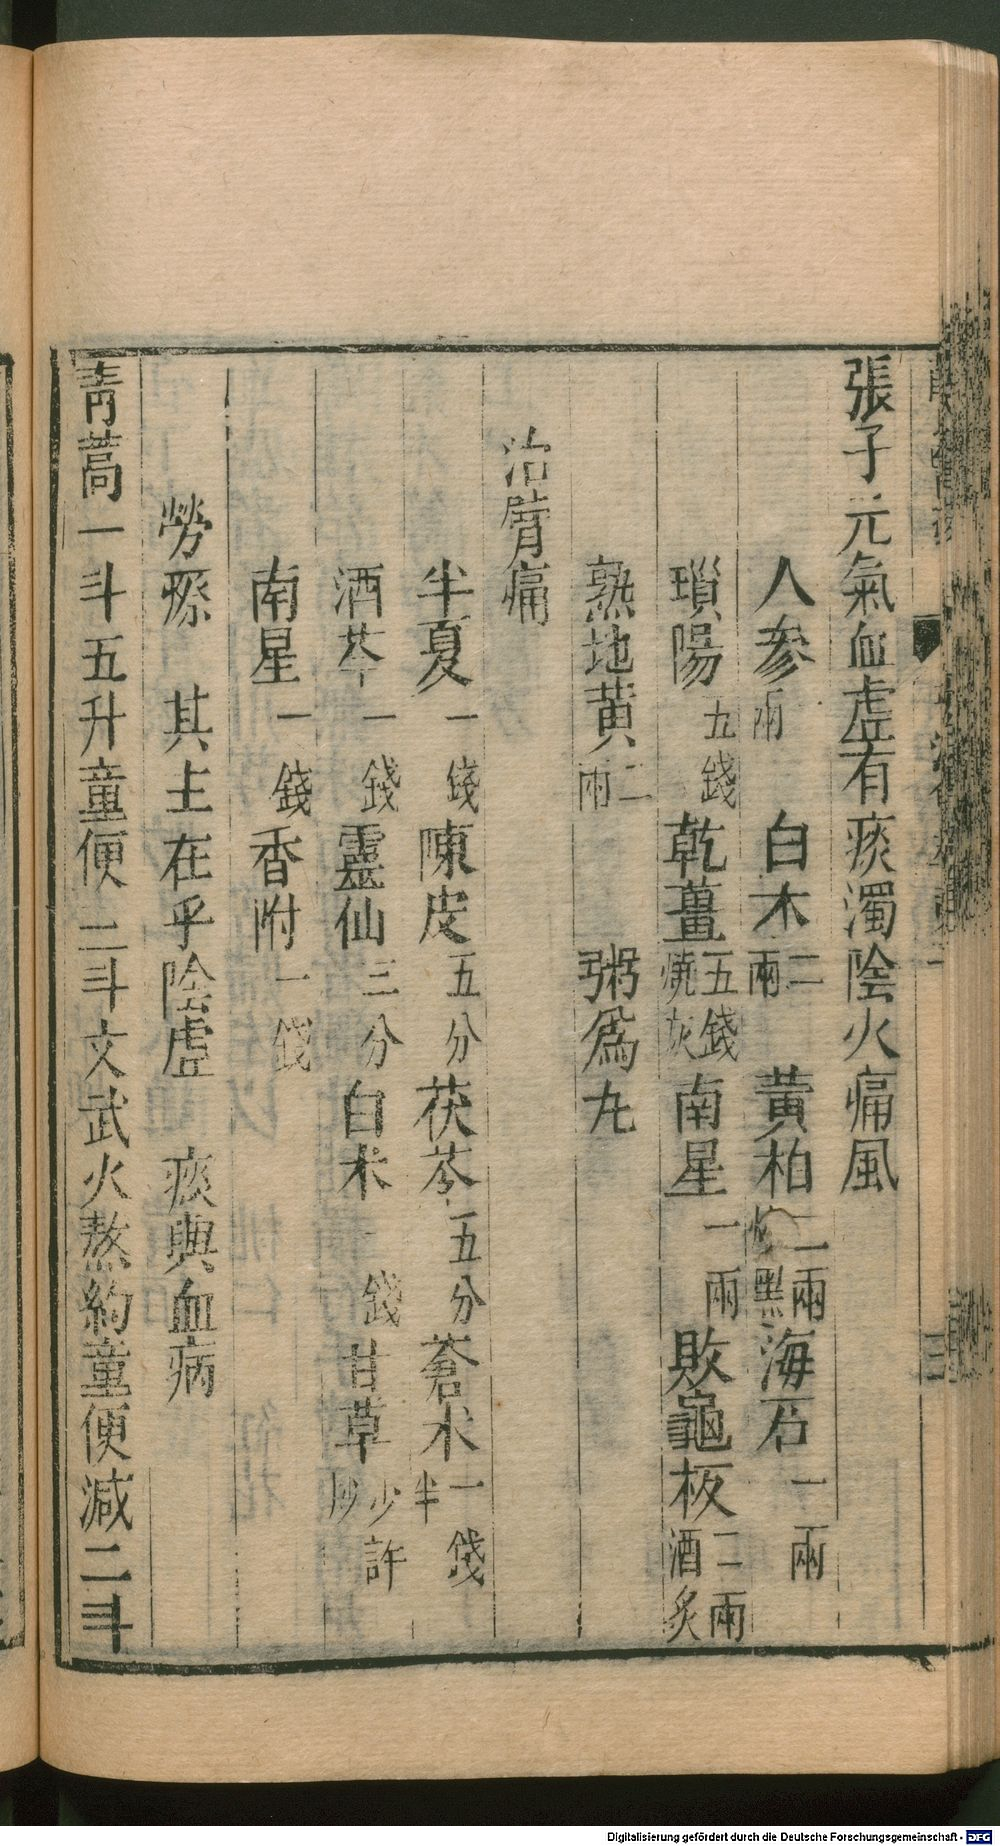 張子元氣血虛有痰濁陰火痛風
人參一兩 白木二兩 黃柏二兩炒黑 海石一兩
瑣陽五錢 乾薑五錢燒灰 南星一兩 敗龜板二兩酒炙
熟地黃二兩 粥爲丸
治臂痛
半夏一錢 陳皮五分 茯苓五分 蒼朮一錢半
酒芩一錢 靈仙三分 白朮一錢 甘草少許炒
南星一錢 香附一錢
勞瘵 其主在乎陰虛 痰與血病
靑蒿一斗五升童便二斗文武火熬約童便減二斗
Digitalisierung gefördert durch die Deutsche Forschungsgemeinschaft - DFG